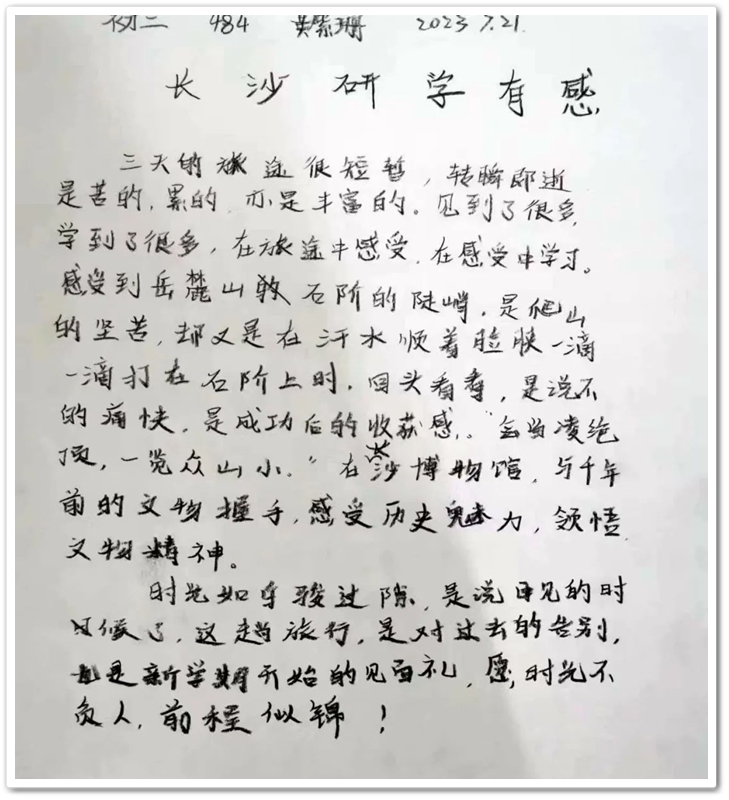 初三 484 黄紫珊 2023 7.21.
长沙研学有感
三天的旅途很短暂，转瞬即逝
是苦的，累的，亦是丰富的。见到了很多，
学到了很多，在旅途中感受，在感受中学习。
感受到岳麓山数石阶的陡峭，是爬山
的坚苦，却又是在汗水顺着脸颊一滴
一滴打在石阶上时，回头看看，是说不
的痛快，是成功后的收获感。“会当凌绝
顶，一览众山小。”在长沙博物馆，与千年
前的文物握手，感受历史魅力，领悟
文物精神。
时光如白驹过隙，是说再见的时
候了，这趟旅行，是对过去的告别，
也是新学期开始的见面礼，愿，时光不
负人，前程似锦！